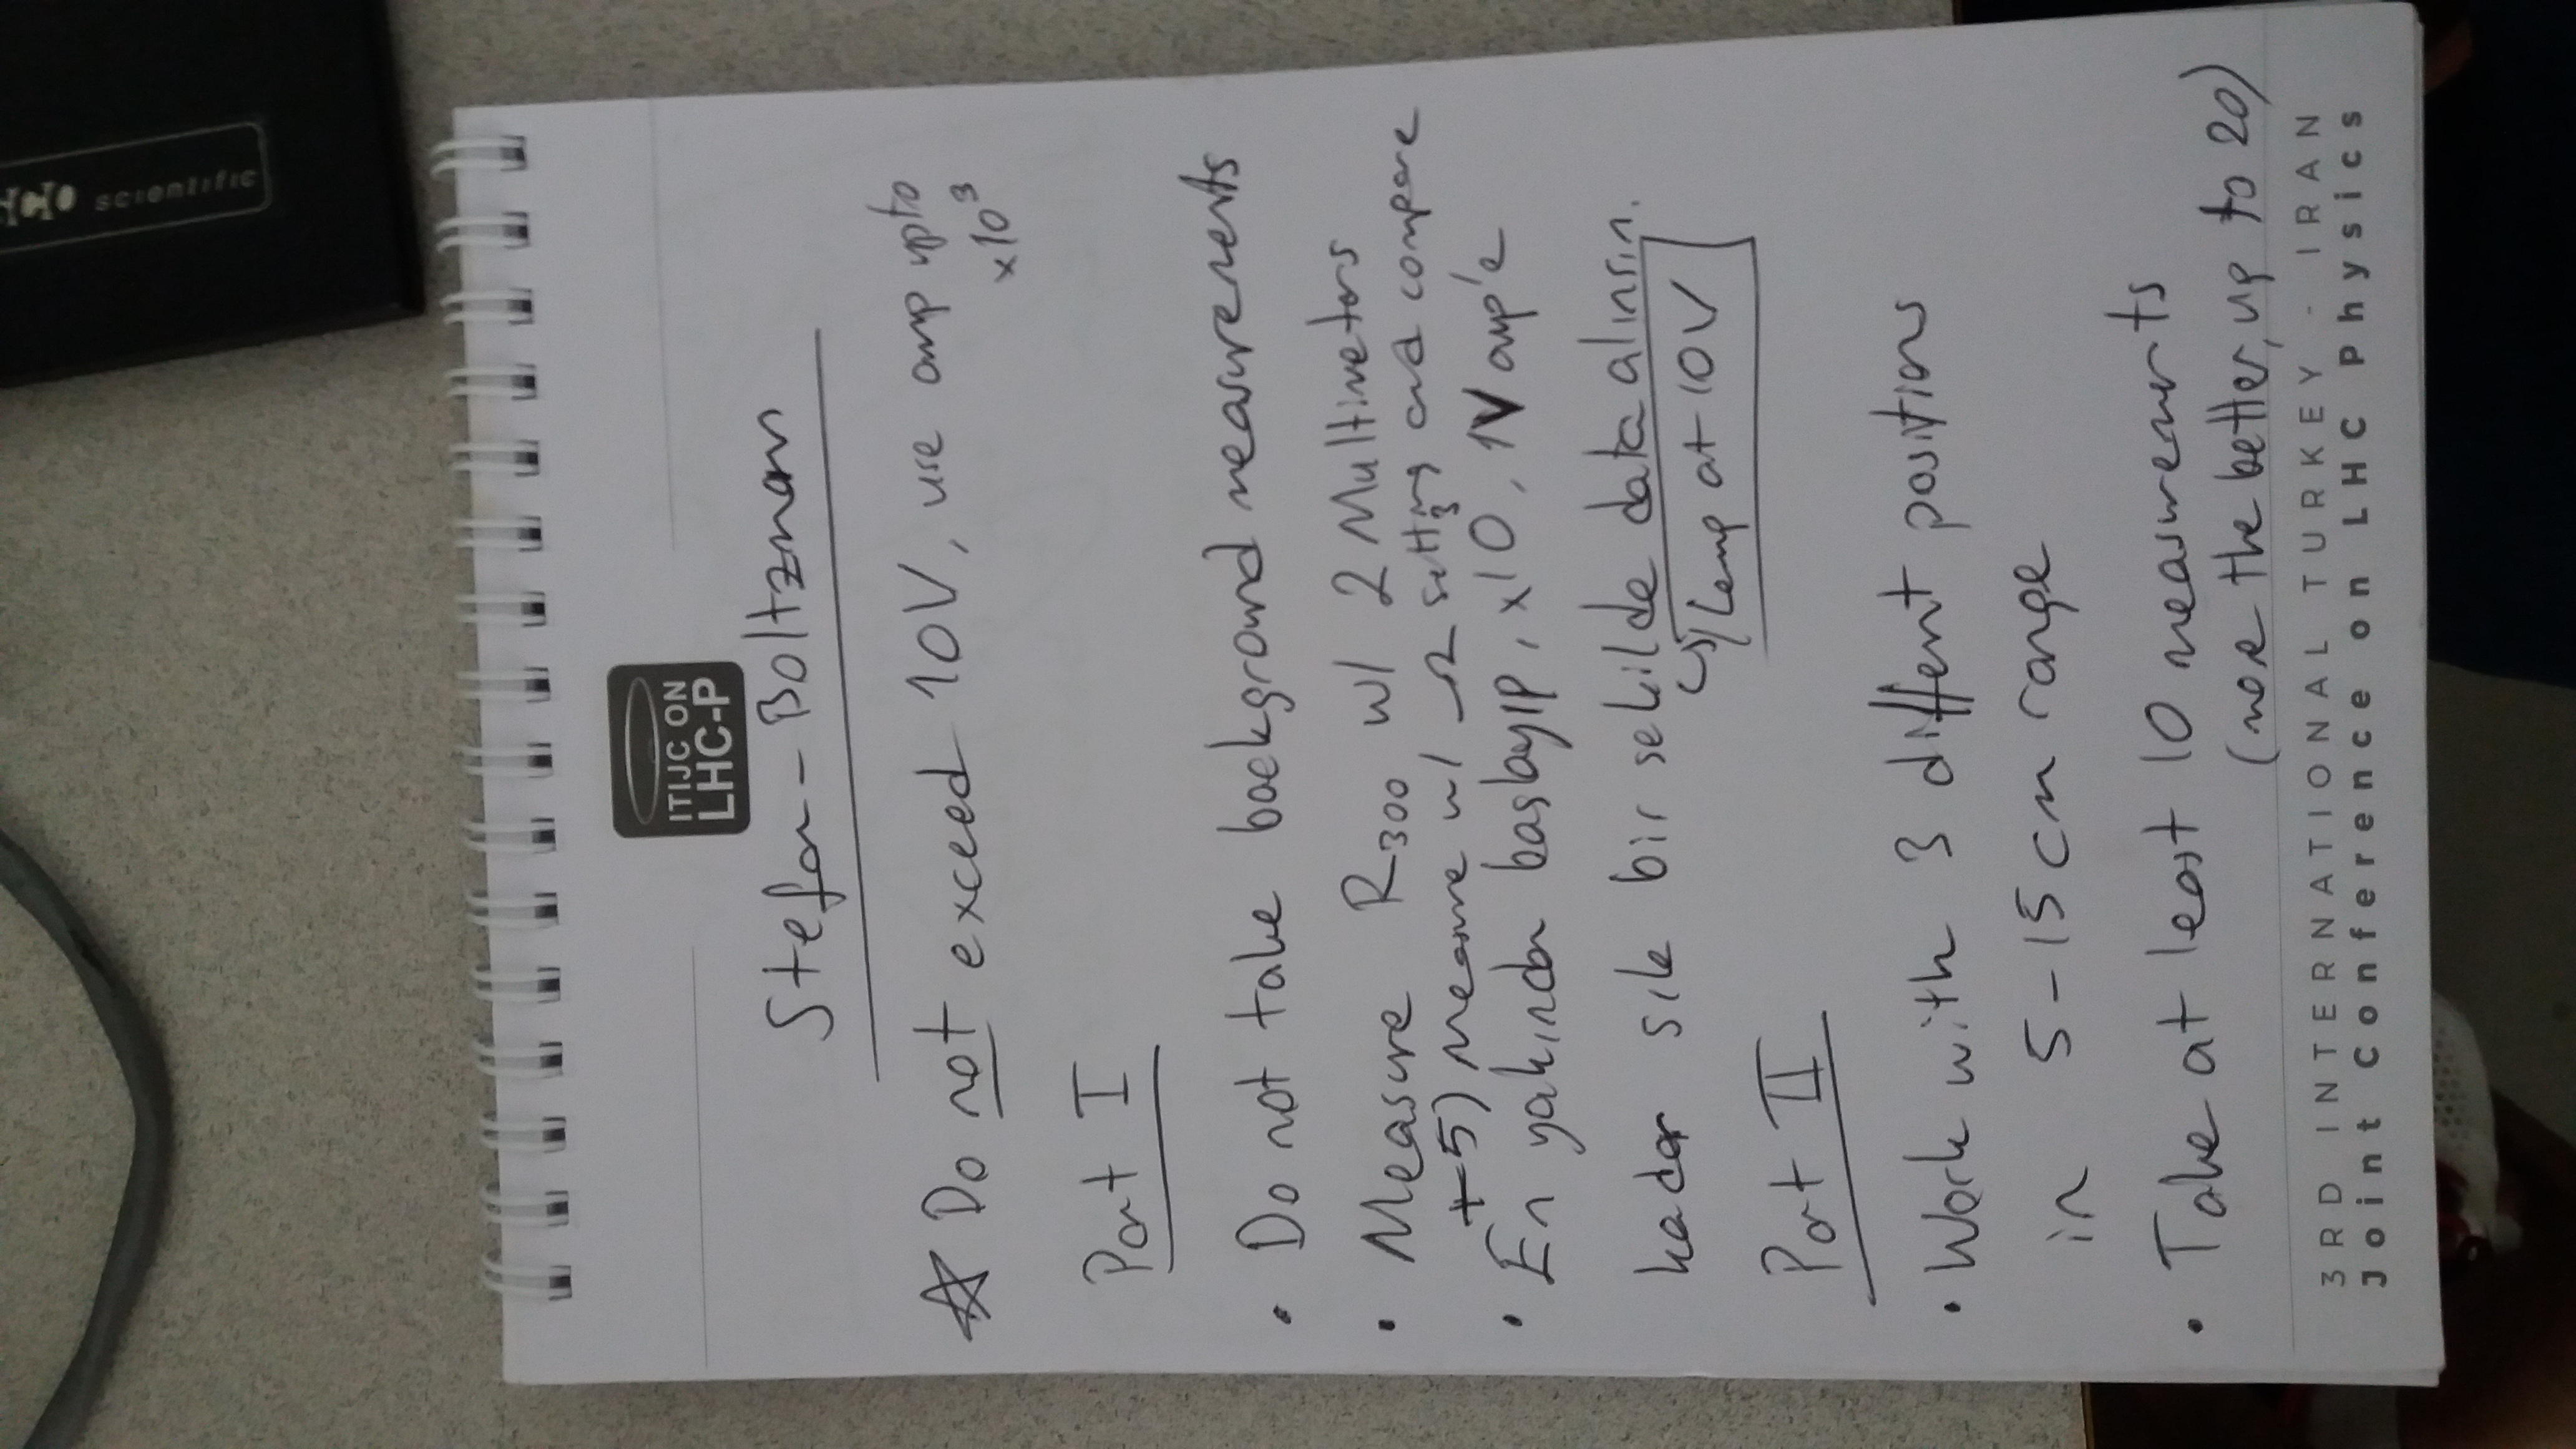 PASCO scientific
ITIJC ON
LHC-P
Stefan-Boltzman
☆ Do not exceed 10V, use amp upto
x10³
Part I
• Do not take background measurements
• Measure R₃₀₀ w/ 2 Multimeters
+5) Measure w/ Ω setting and compare
• En yakından başlayıp, x10³, 1V amp'e
kadar sık bir sekilde data alınsın.
↳ Lamp at 10V
Part II
• Work with 3 diffent positions
in 5-15cm range
• Take at least 10 measurements
(more the better, up to 20)
3RD INTERNATIONAL TURKEY - IRAN
Joint Conference on LHC Physics